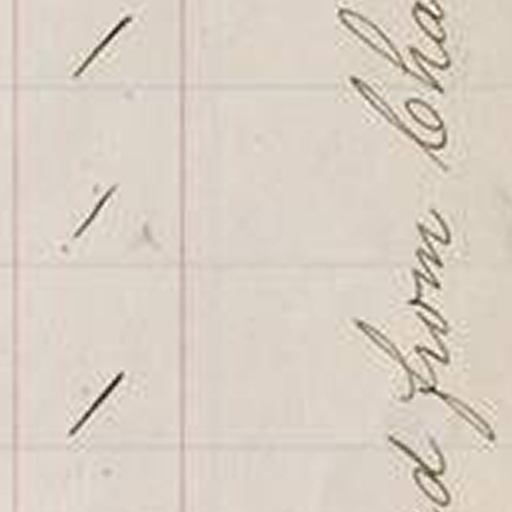 /
/
/
d from Cha